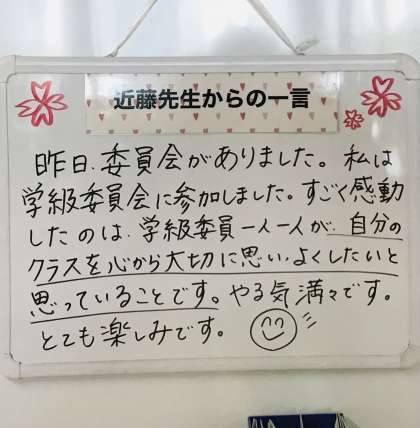 近藤先生からの一言
昨日、委員会がありました。私は
学級委員会に参加しました。すごく感動
したのは、学級委員一人一人が、自分の
クラスを心から大切に思い、よくしたいと
思っていることです。やる気満々です。
とても楽しみです。